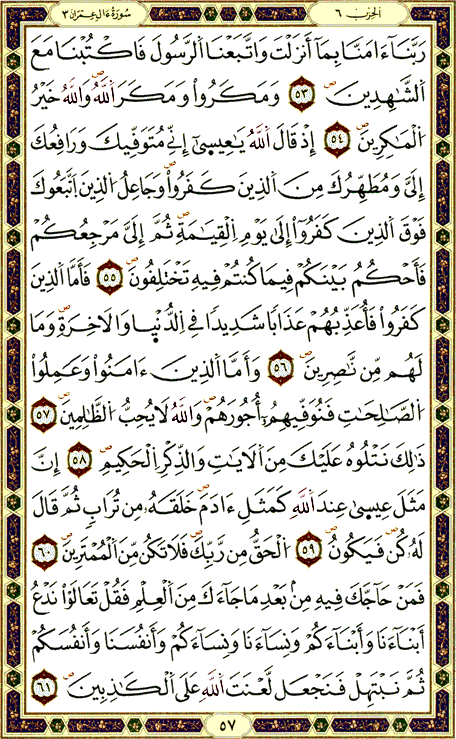 سُورَةُ ءَالِ عِمْرَان ٣
الحِزب ٦
رَبَّنَآ ءَامَنَّا بِمَآ أَنزَلْتَ وَاتَّبَعْنَا اَلرَّسُولَ فَاكْتُبْنَا مَعَ
اَلشَّٰهِدِينَۖ ٥٣ وَمَكَرُواْ وَمَكَرَ اَللَّهُۖ وَاللَّهُ خَيْرُ
اُلْمَٰكِرِينَۖ ٥٤ إِذْ قَالَ اَللَّهُ يَٰعِيسَىٰٓ إِنِّي مُتَوَفِّيكَ وَرَافِعُكَ
إِلَيَّ وَمُطَهِّرُكَ مِنَ اَلذِينَ كَفَرُواْۖ وَجَاعِلُ اُلذِينَ اَتَّبَعُوكَ
فَوْقَ اَلذِينَ كَفَرُوٓاْ إِلَىٰ يَوْمِ اِلْقِيَٰمَةِۖ ثُمَّ إِلَيَّ مَرْجِعُكُمْ
فَأَحْكُمُ بَيْنَكُمْ فِيمَا كُنتُمْ فِيهِ تَخْتَلِفُونَۖ ٥٥ فَأَمَّا اَلذِينَ
كَفَرُواْ فَأُعَذِّبُهُمْ عَذَابًا شَدِيدًا فِي اِلدُّنْيَا وَالَاخِرَةِۖ وَمَا
لَهُم مِّن نَّٰصِرِينَۖ ٥٦ وَأَمَّا اَلذِينَ ءَامَنُواْ وَعَمِلُواْ
اُلصَّٰلِحَٰتِ فَنُوَفِّيهِمُۥٓ أُجُورَهُمْۖ وَاللَّهُ لَا يُحِبُّ اُلظَّٰلِمِينَۖ ٥٧
ذَٰلِكَ نَتْلُوهُ عَلَيْكَ مِنَ اَلَايَٰتِ وَالذِّكْرِ اِلْحَكِيمِۖ ٥٨ إِنَّ
مَثَلَ عِيسَىٰ عِندَ اَللَّهِ كَمَثَلِ ءَادَمَۖ خَلَقَهُۥ مِن تُرَابٍ ثُمَّ قَالَ
لَهُۥ كُنۖ فَيَكُونُۖ ٥٩ اُلْحَقُّ مِن رَّبِّكَۖ فَلَا تَكُن مِّنَ اَلْمُمْتَرِينَۖ ٦٠
فَمَنْ حَآجَّكَ فِيهِ مِنۢ بَعْدِ مَا جَآءَكَ مِنَ اَلْعِلْمِ فَقُلْ تَعَالَوْاْ نَدْعُ
أَبْنَآءَنَا وَأَبْنَآءَكُمْ وَنِسَآءَنَا وَنِسَآءَكُمْ وَأَنفُسَنَا وَأَنفُسَكُمْ
ثُمَّ نَبْتَهِلْ فَنَجْعَل لَّعْنَتَ اَللَّهِ عَلَى اَلْكَٰذِبِينَۖ ٦١
٥٧